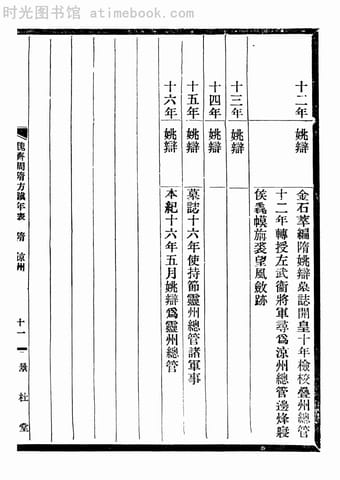 时光图书馆 atimebook.com
十二年 姚辯 金石萃編隋姚辯墓誌開皇十年檢校疊州總管
十二年轉授左武衞將軍尋爲涼州總管邊烽寢
侯毳幙旃裘望風斂跡
十三年 姚辯
十四年 姚辯
十五年 姚辯 墓誌十六年使持節靈州總管諸軍事
十六年 姚辯 本紀十六年五月姚辯爲靈州總管
齊周隋方鎭年表 隋 涼州 十一 景杜堂